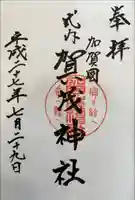 奉拝
加賀國
式内
賀茂神社
平成二十七年七月二十九日